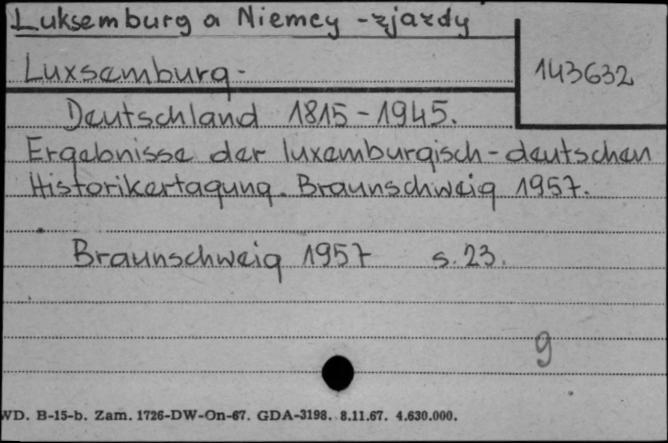 Luksemburg a Niemcy - zjazdy
143632
Luxsemburg -
Deutschland 1815 - 1945.
Ergebnisse der luxemburgisch - deutschen
Historikertagung. Braunschweig 1957.
Braunschweig 1957 s. 23.
9
WD. B-15-b. Zam. 1726-DW-On-67. GDA-3198. 8.11.67. 4.630.000.